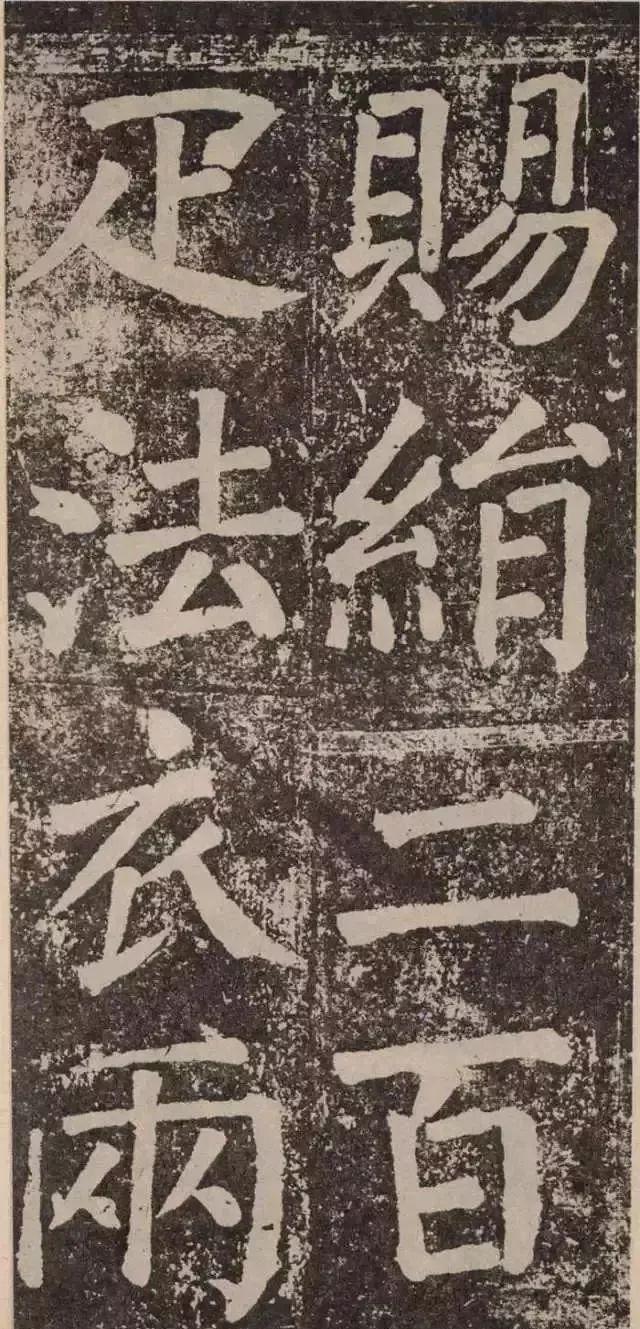 賜絹二百
疋法衣兩